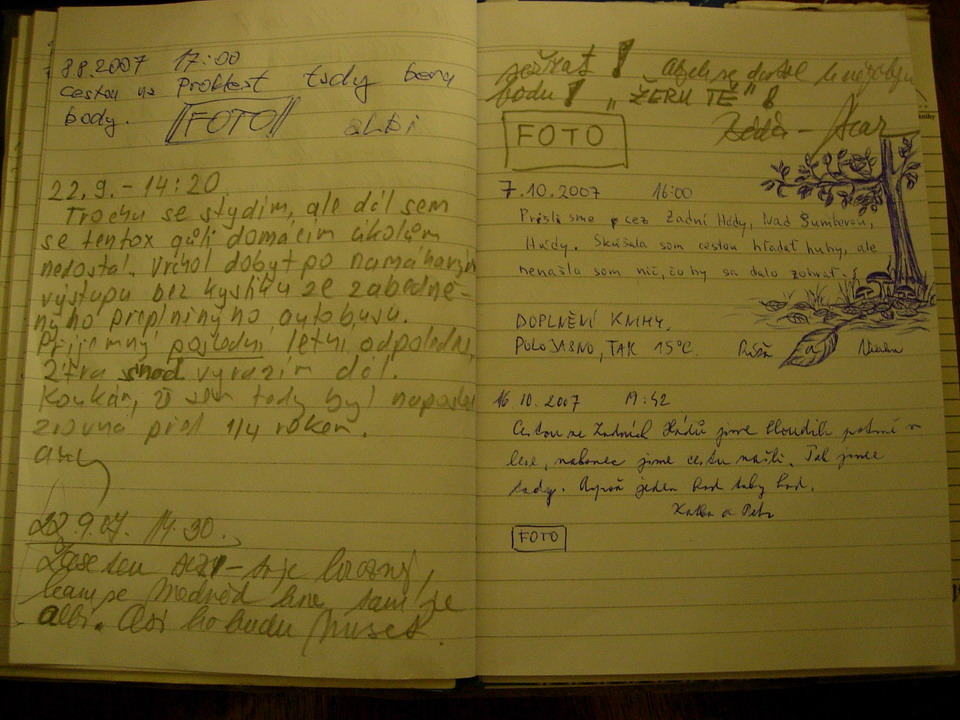 8.8.2007 17:00
cestou na Prottest tady beru
body. FOTO albi
22.9. - 14:20
Trochu se stydím, ale dál sem
se tentox qůli domácím úkolům
nedostal. Vrchol dobyt po namáhavým
výstupu bez kyslíku ze zabedně-
nýho přeplněnýho autobusu.
Příjemný poslední letní odpoledne,
zítra snad vyrazím dál.
Koukám, že sem tady byl naposled
zrovna před 1/4 rokem.
22.9.07. 14.30.
Zase sem - to je hrozný,
kam se Medvěd hne, tam je
albi. Asi ho budu muset
sežrat! Abych se dostal
bodu! "ŽERU TĚ"!
FOTO
7.10.2007 16:00
Prišli sme cez Zadní Hády, Nad Šumberou,
Hády. Skúšala som cestou hľadať huby, ale
nenašla som nič, čo by sa dalo zohrať.
DOPLNĚNÍ KNIHY.
POLOJASNO, TAK 15°C.
16.10.2007 19:42
Cestou ze Zadních Hádů jsme bloudili potmě v
lese, nakonec jsme cestu našli. Tak jsme
tady. Aspoň jeden bod taky bod.
Katka a Petr
FOTO